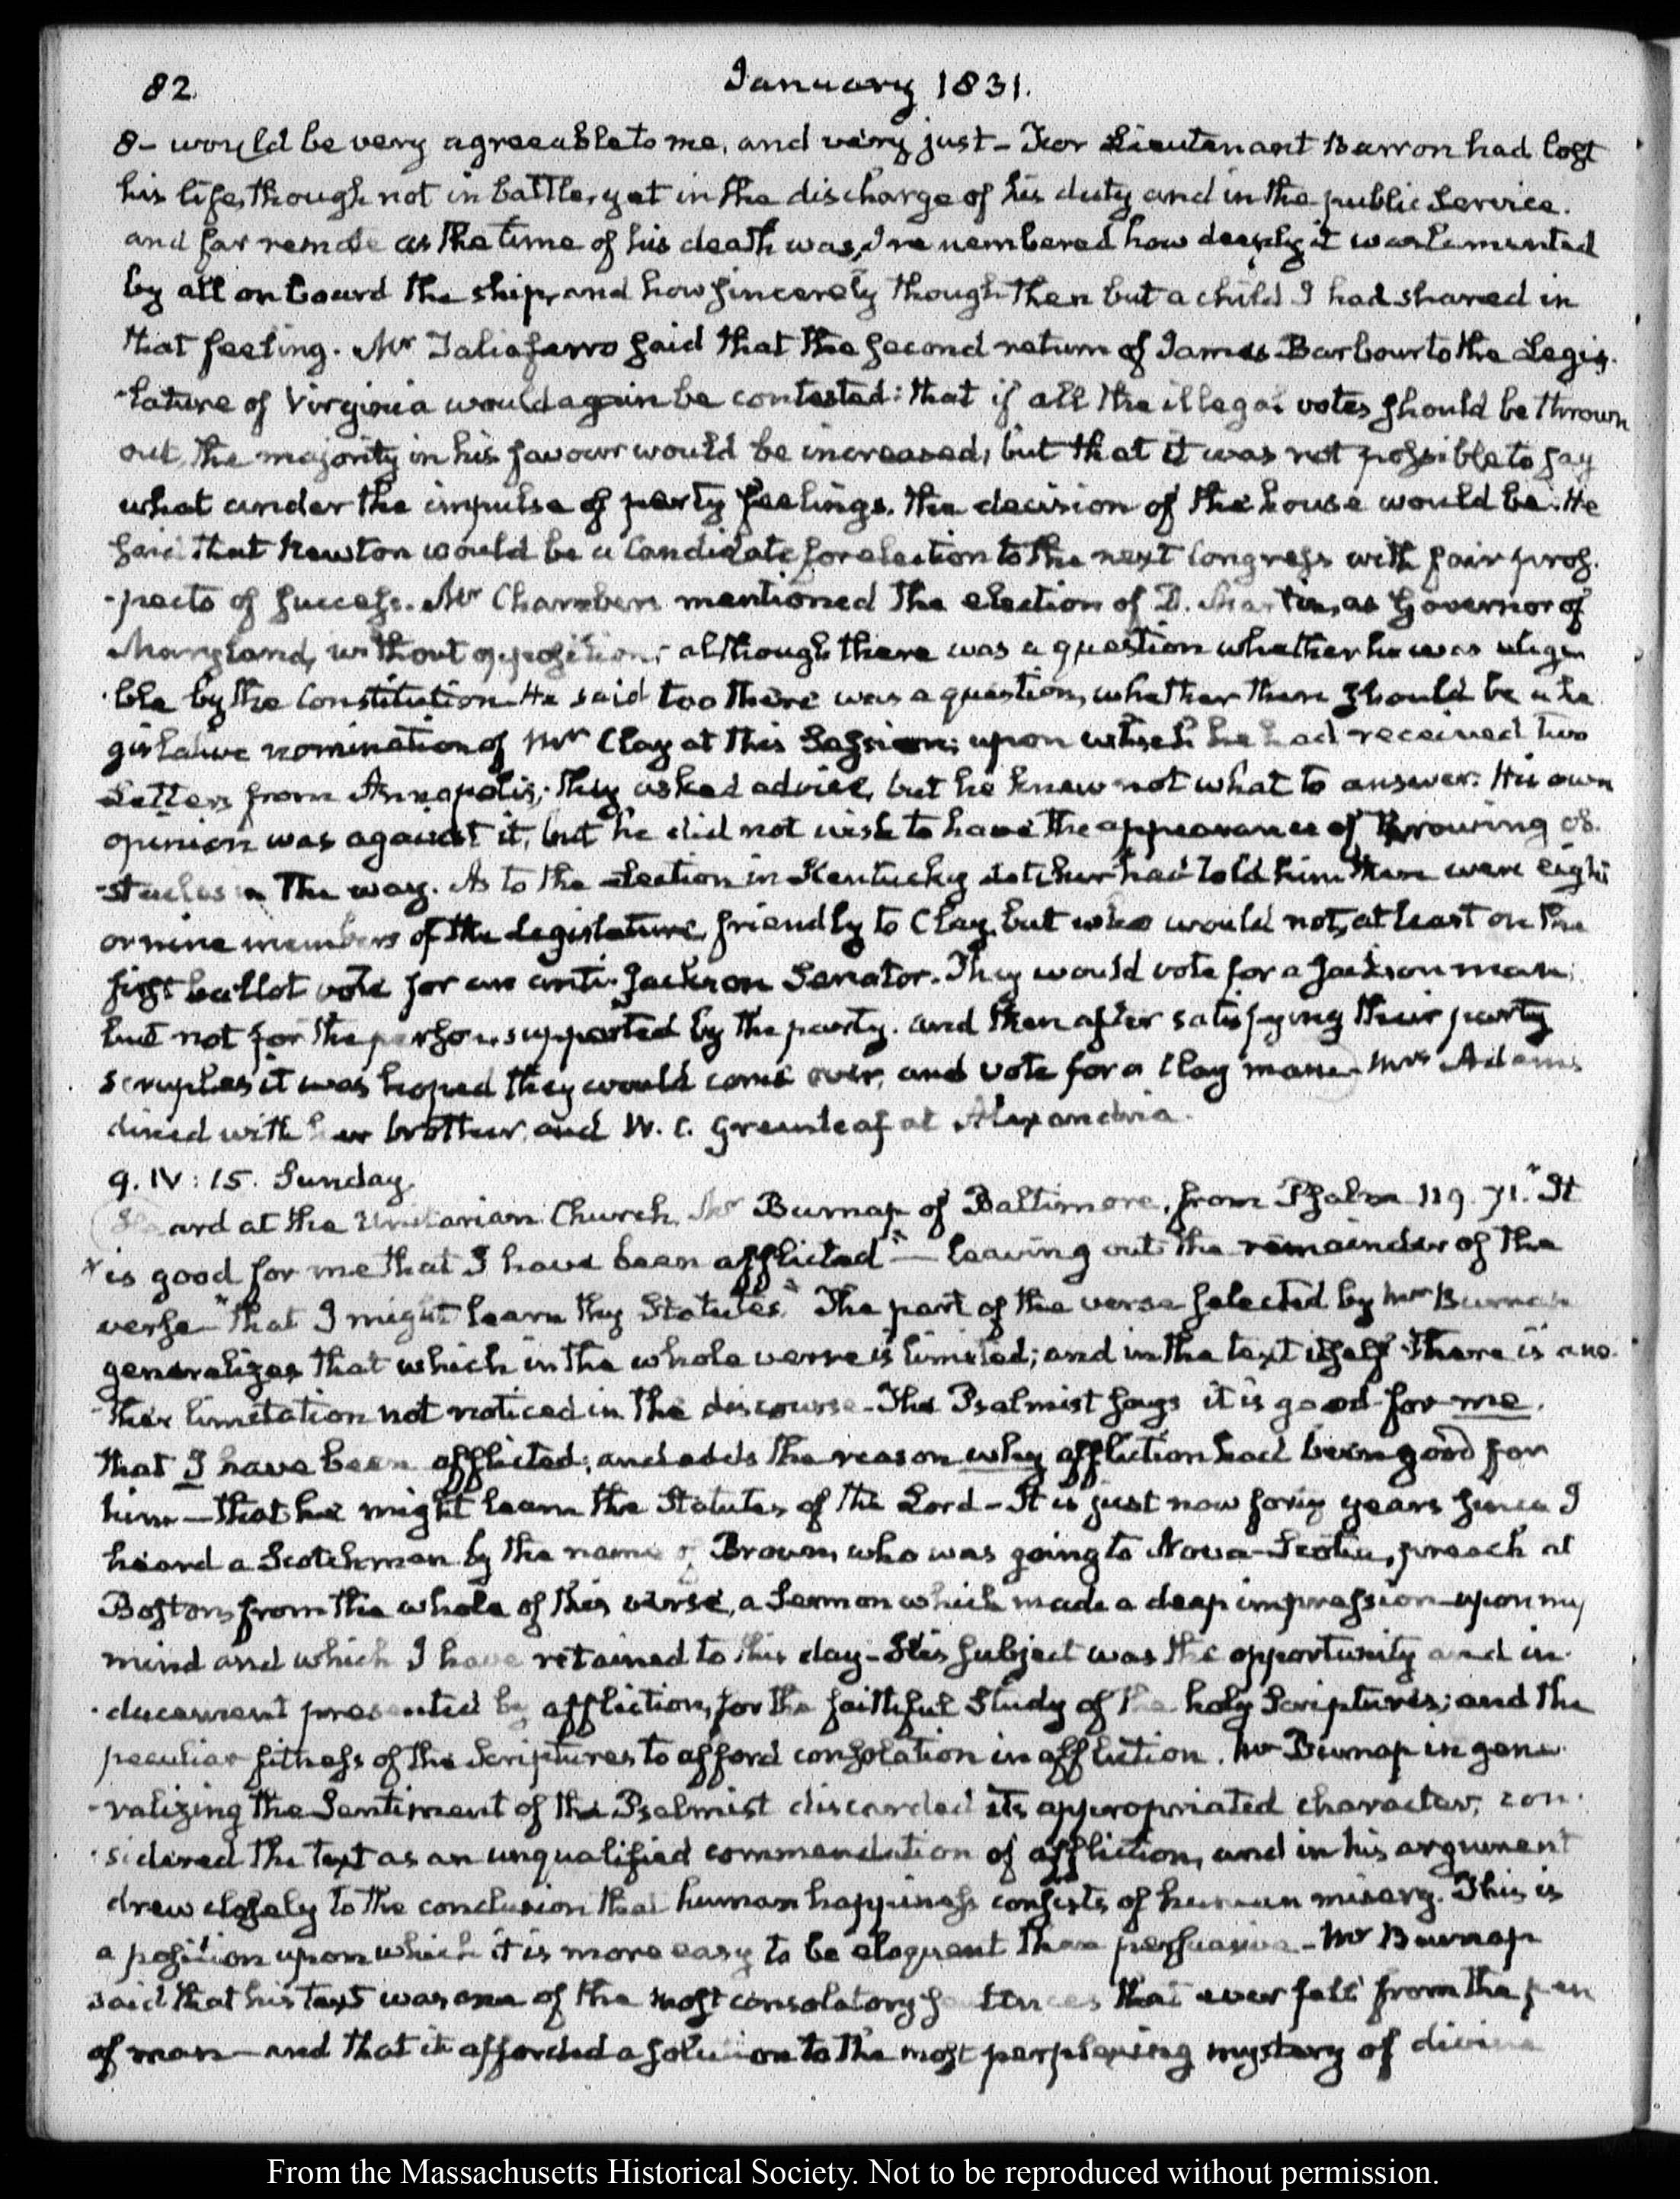 82
January 1831.
8- would be very agreeable to me, and very just - For Lieutenant Barron had lost
his life, though not in battle, yet in the discharge of his duty and in the public Service.
and far remote as the time of his death was, I remembered how deeply it was lamented
by all on board the ship, and how sincerely though then but a child I had shared in
that feeling. Mr Taliaferro said that the second return of James Barbour to the Legis-
-lature of Virginia would again be contested: that if all the illegal votes should be thrown
out, the majority in his favour would be increased, but that it was not possible to say
what under the impulse of party feelings, the decision of the house would be. He
said that Newton would be a Candidate for election to the next Congress with fair pros-
-pects of success. Mr Chambers mentioned the election of D. Martin, as Governor of
Maryland, without opposition; although there was a question whether he was eligi
-ble by the Constitution. He said too there was a question, whether there should be a Le
gislative nomination of Mr Clay at this Session; upon which he had received two
Letters from Annapolis; they asked advice, but he knew not what to answer. His own
opinion was against it, but he did not wish to have the appearance of throwing ob-
-stacles in the way. As to the election in Kentucky Letcher had told him there were eight
or nine members of the Legislature, friendly to Clay, but who would not, at least on the
first ballot vote for an anti-Jackson Senator. They would vote for a Jackson man;
but not for the person supported by the party. and then after satisfying their party
scruples it was hoped they would come over, and vote for a Clay man. Mrs Adams
dined with her brother, and W. C. Greenleaf at Alexandria.
9. IV: 15. Sunday.
Heard at the Unitarian Church, Mr Burnap of Baltimore, from Psalm 119. 71. "It
"is good for me that I have been afflicted" — leaving out the remainder of the
verse "that I might learn thy Statutes." The part of the verse selected by Mr Burnap
generalizes that which in the whole verse is limited; and in the text itself there is ano-
-ther limitation not noticed in the discourse - The Psalmist says it is good for me,
that I have been afflicted; and adds the reason why affliction had been good for
him — that he might learn the Statutes of the Lord - It is just now forty years since I
heard a Scotchman by the name of Brown, who was going to Nova-Scotia, preach at
Boston, from the whole of this verse, a Sermon which made a deep impression upon my
mind and which I have retained to this day - His subject was the opportunity and in-
-ducement presented by affliction, for the faithful Study of the holy Scriptures; and the
peculiar fitness of the Scriptures to afford consolation in affliction. Mr Burnap in gene-
-ralizing the Sentiment of the Psalmist discarded its appropriated character, con-
-sidered the text as an unqualified commendation of affliction, and in his argument
drew closely to the conclusion that human happiness consists of human misery. This is
a position upon which it is more easy to be eloquent than persuasive - Mr Burnap
said that his text was one of the most consolatory sentences that ever fell from the pen
of man - and that it afforded a solution to the most perplexing mystery of divine
From the Massachusetts Historical Society. Not to be reproduced without permission.